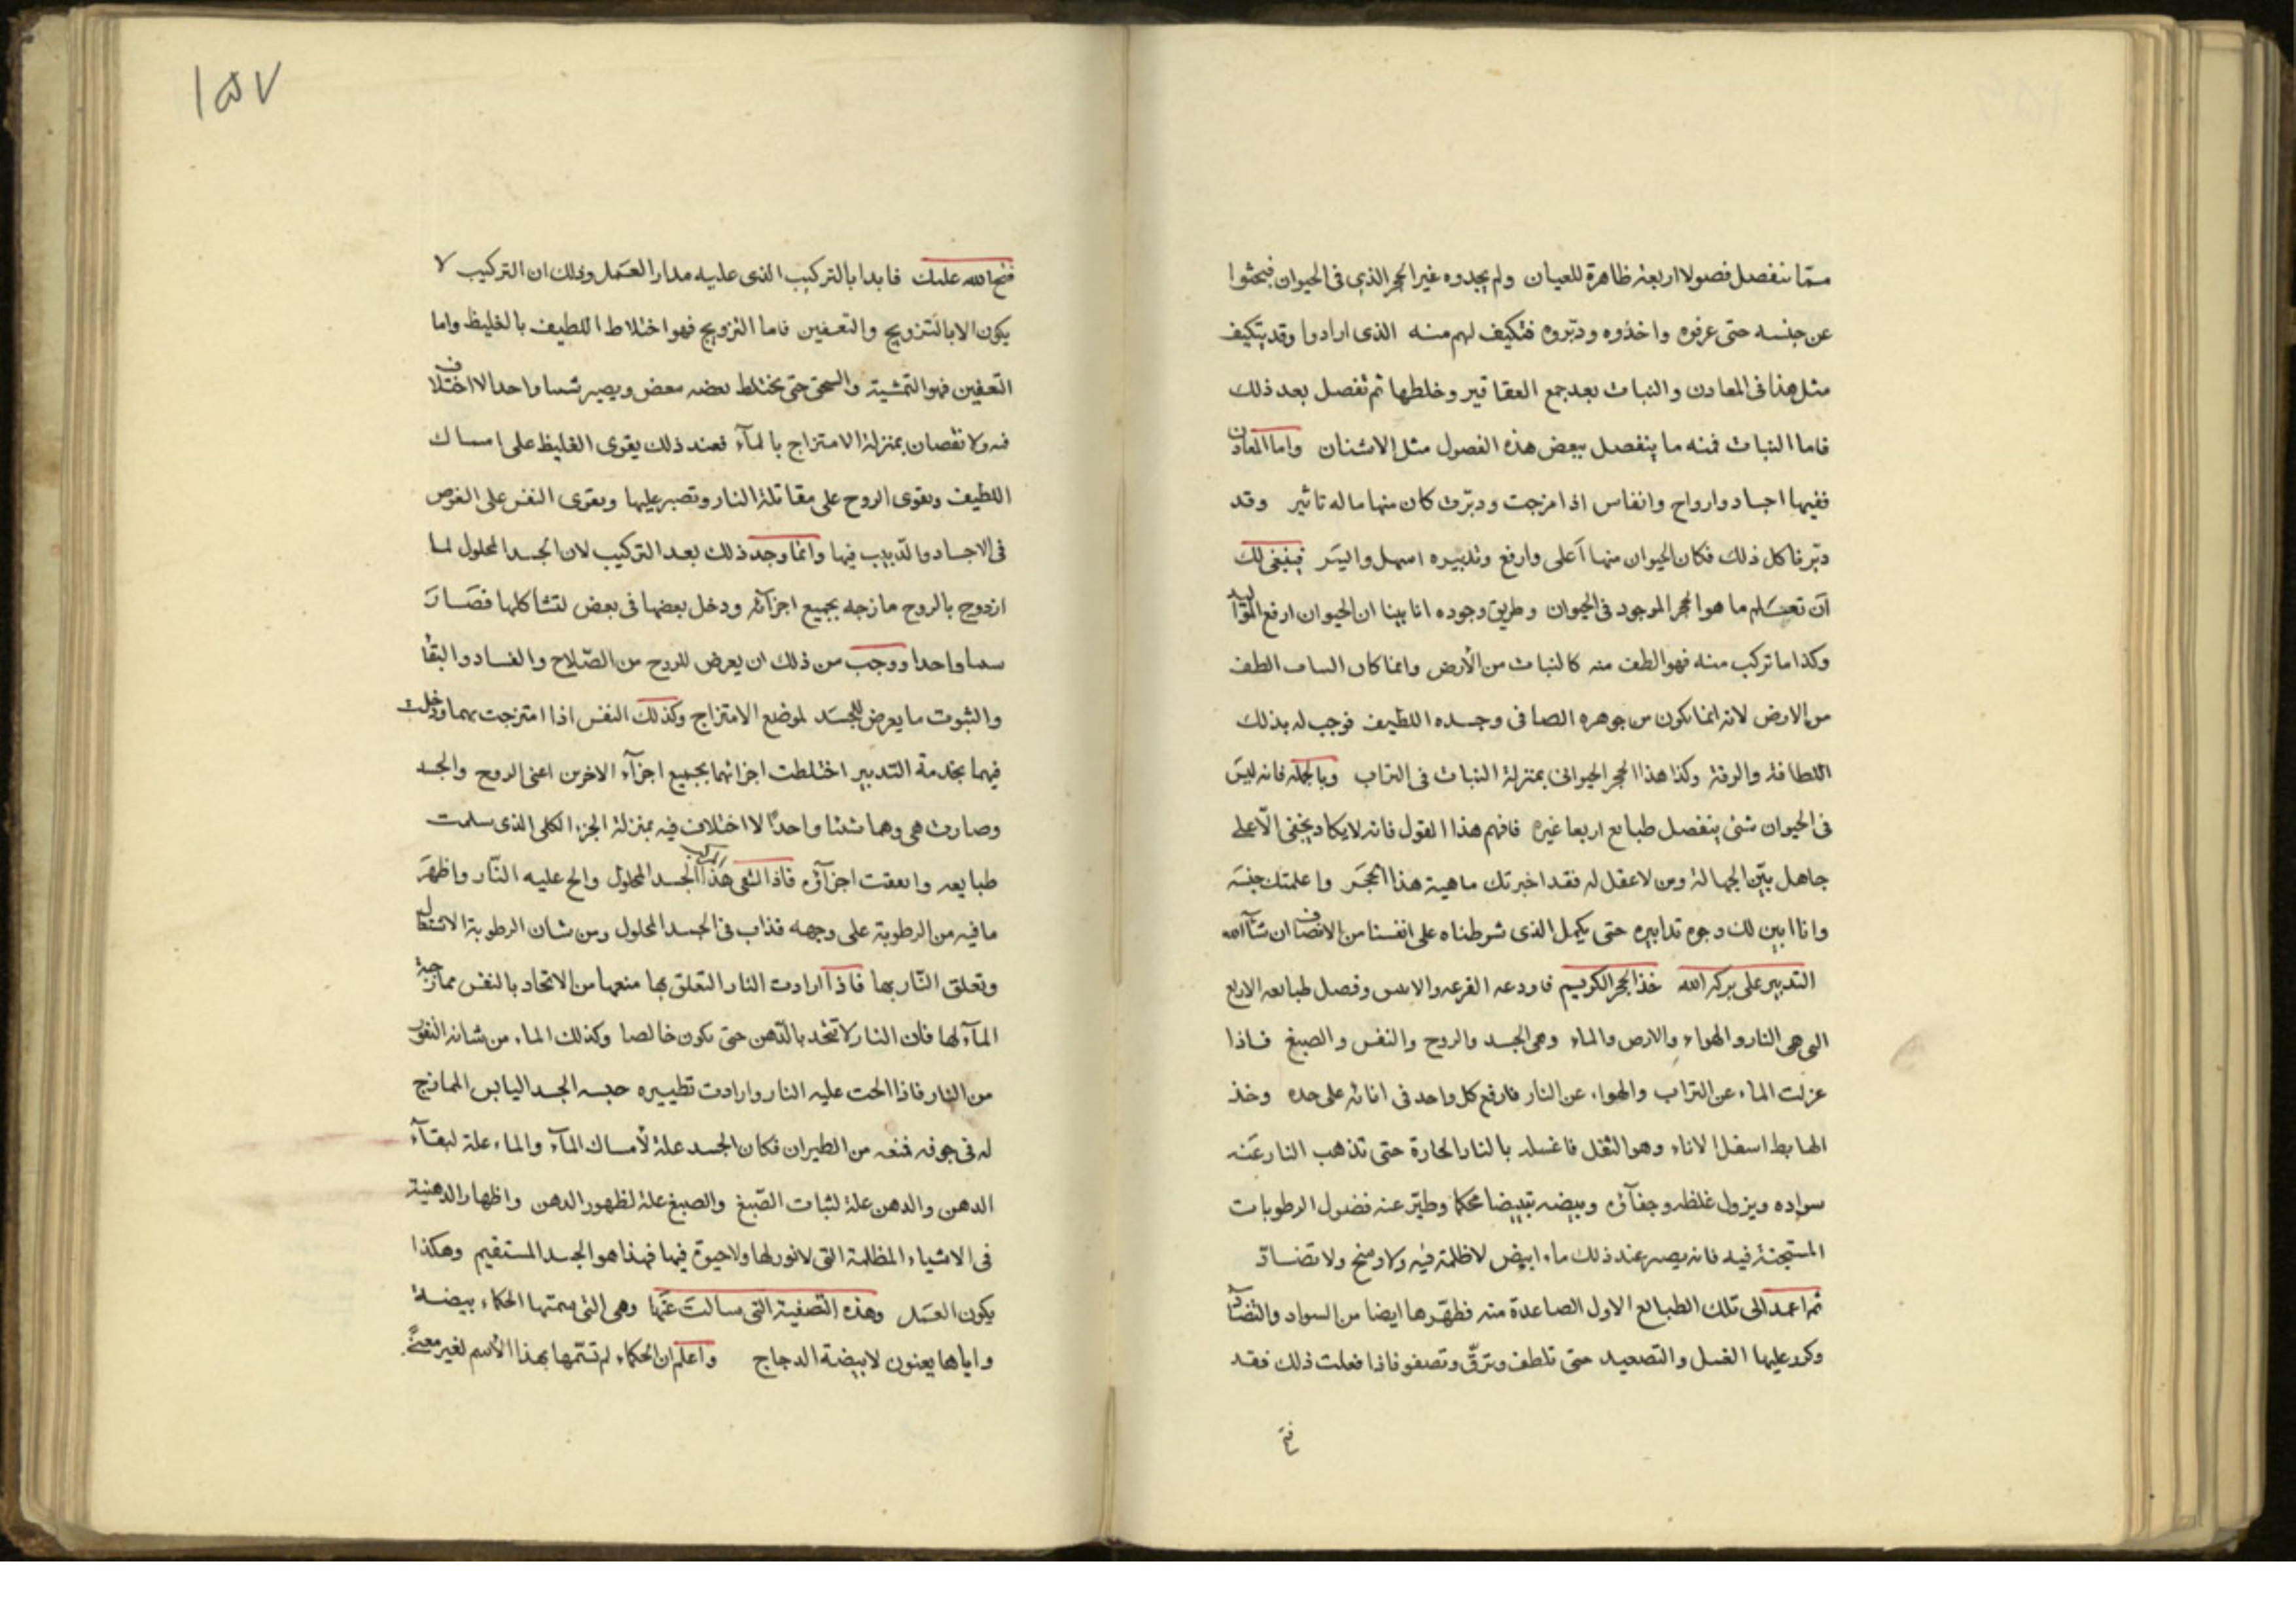 مما ينفصل فصولا اربعة ظاهرة للعيان ولم يجدوه غير الحجر الذى فى الحيوان فبحثوا
عن جنسه حتى عرفوه واخذوه ودبّروه فتكيف لهم منه الذى ارادوا وقد يتكيف
مثل هذا فى المعادن والنبات بعد جمع العقاقير وخلطها ثم تفصل بعد ذلك
فاما النبات فمنه ما ينفصل ببعض هذه الفصول مثل الاشنان واما المعادن
ففيها اجساد وارواح وانفاس اذا مزجت ودبّرت كان منها ماله تاثير وقد
دبّرنا كل ذلك فكان الحيوان منها اعلى وارفع وتدبيره اسهل وايسر فينبغى لك
ان تعلم ما هو الحجر الموجود فى الحيوان وطريق وجوده انا بينا ان الحيوان ارفع المواليد
وكذا ما تركب منه فهو الطف منه كالنبات من الارض وانما كان النبات الطف
من الارض لانه انما يكون من جوهره الصافى وجسده اللطيف فوجب له بذلك
اللطافة والرقة وكذا هذا الحجر الحيوانى بمنزلة النبات فى التراب وبالجملة فانه ليس
فى الحيوان شئ ينفصل طبايع اربعا غيره فافهم هذا القول فانه لا يكاد يخفى الّا على
جاهل بيّن الجهالة ومن لا عقل له فقد اخبرتك ماهية هذا الحجر واعلمتك جنسه
وانا ابين لك وجوه تدابيره حتى يكمل الذى شرطناه على انفسنا من الانصاف ان شاء الله
التدبير على بركة الله خذ الحجر الكريم فاودعه القرعه والانبيق وفصل طبايعه الاربع
التى هى النار والهواء والارض والماء وهى الجسد والروح والنفس والصبغ فاذا
عزلت الماء عن التراب والهواء عن النار فارفع كل واحد فى انائه على حده وخذ
الهابط اسفل الاناء وهو الثفل فاغسله بالنار الحارة حتى تذهب النار عنه
سواده ويزول غلظه وجفآئه وبيضه تبييضا محكما وطيّر عنه فضول الرطوبات
المستجنة فيه فانه يصير عند ذلك ماء ابيض لا ظلمة فيه ولا وسخ ولا تضادّ
ثم اعمد الى تلك الطبايع الاول الصاعدة منه فطهّرها ايضا من السواد والتضاد
وكرر عليها الغسل والتصعيد حتى تلطف وترقّ وتصفو فاذا فعلت ذلك فقد
فتح
١٥٧
فتح الله عليك فابدا بالتركيب الذى عليه مدار العمل وذلك ان التركيب لا
يكون الا بالتزويج والتعفين فاما التزويج فهو اختلاط اللطيف بالغليظ واما
التعفين فهو التمشية والسحق حتى يختلط بعضه ببعض ويصير شيئا واحدا لا اختلاف
فيه ولا نقصان بمنزلة الامتزاج بالمآء فعند ذلك يقوى الغليظ على امساك
اللطيف وتقوى الروح على مقاتلة النار وتصبر عليها وتقوى النفس على الغوص
فى الاجساد والدبيب فيها وانما وجد ذلك بعد التركيب لان الجسد المحلول لما
ازدوج بالروح مازجه بجميع اجزآئه ودخل بعضها فى بعض لتشاكلها فصار
شيئا واحدا ووجب من ذلك ان يعرض للروح من الصّلاح والفساد والبقاء
والثبوت ما يعرض للجسد لموضع الامتزاج وكذلك النفس اذا امتزجت بهما ودخلت
فيهما بخدمة التدبير اختلطت اجزائهما بجميع اجزآء الاخرين اعنى الروح والجسد
وصارت هى وهما شيئا واحدًا لا اختلاف فيه بمنزلة الجزء الكلى الذى سلمت
طبايعه واتفقت اجزآئه فاذا التقى هذا المركب الجسد المحلول والح عليه النّار واظهر
ما فيه من الرطوبة على وجهه فذاب فى الجسد المحلول ومن شان الرطوبة الاشتعال
وتعلق النّار بها فاذا ارادت النار التعلق بها منعها من الاتحاد بالنفس ممازجة
المآء لها فان النار لا تتحد بالدّهن حتى يكون خالصا وكذلك الماء من شانه النفور
من النار فاذا الحت عليه النار وارادت تطييره حبسه الجسد اليابس الممازج
له فى جوفه فمنعه من الطيران فكان الجسد علة لأمساك المآء والماء علة لبقآء
الدهن والدهن علة لثبات الصّبغ والصبغ علة لظهور الدهن واظهار الدهنية
فى الاشياء المظلمة التى لا نور لها ولا حيوة فيها فهذا هو الجسد المستقيم وهكذا
يكون العمل وهذه التصفية التى سالت عنها وهى التى سمتها الحكماء بيضة
واياها يعنون لا بيضة الدجاج واعلم ان الحكماء لم تسمّها بهذا الاسم لغير معنىً